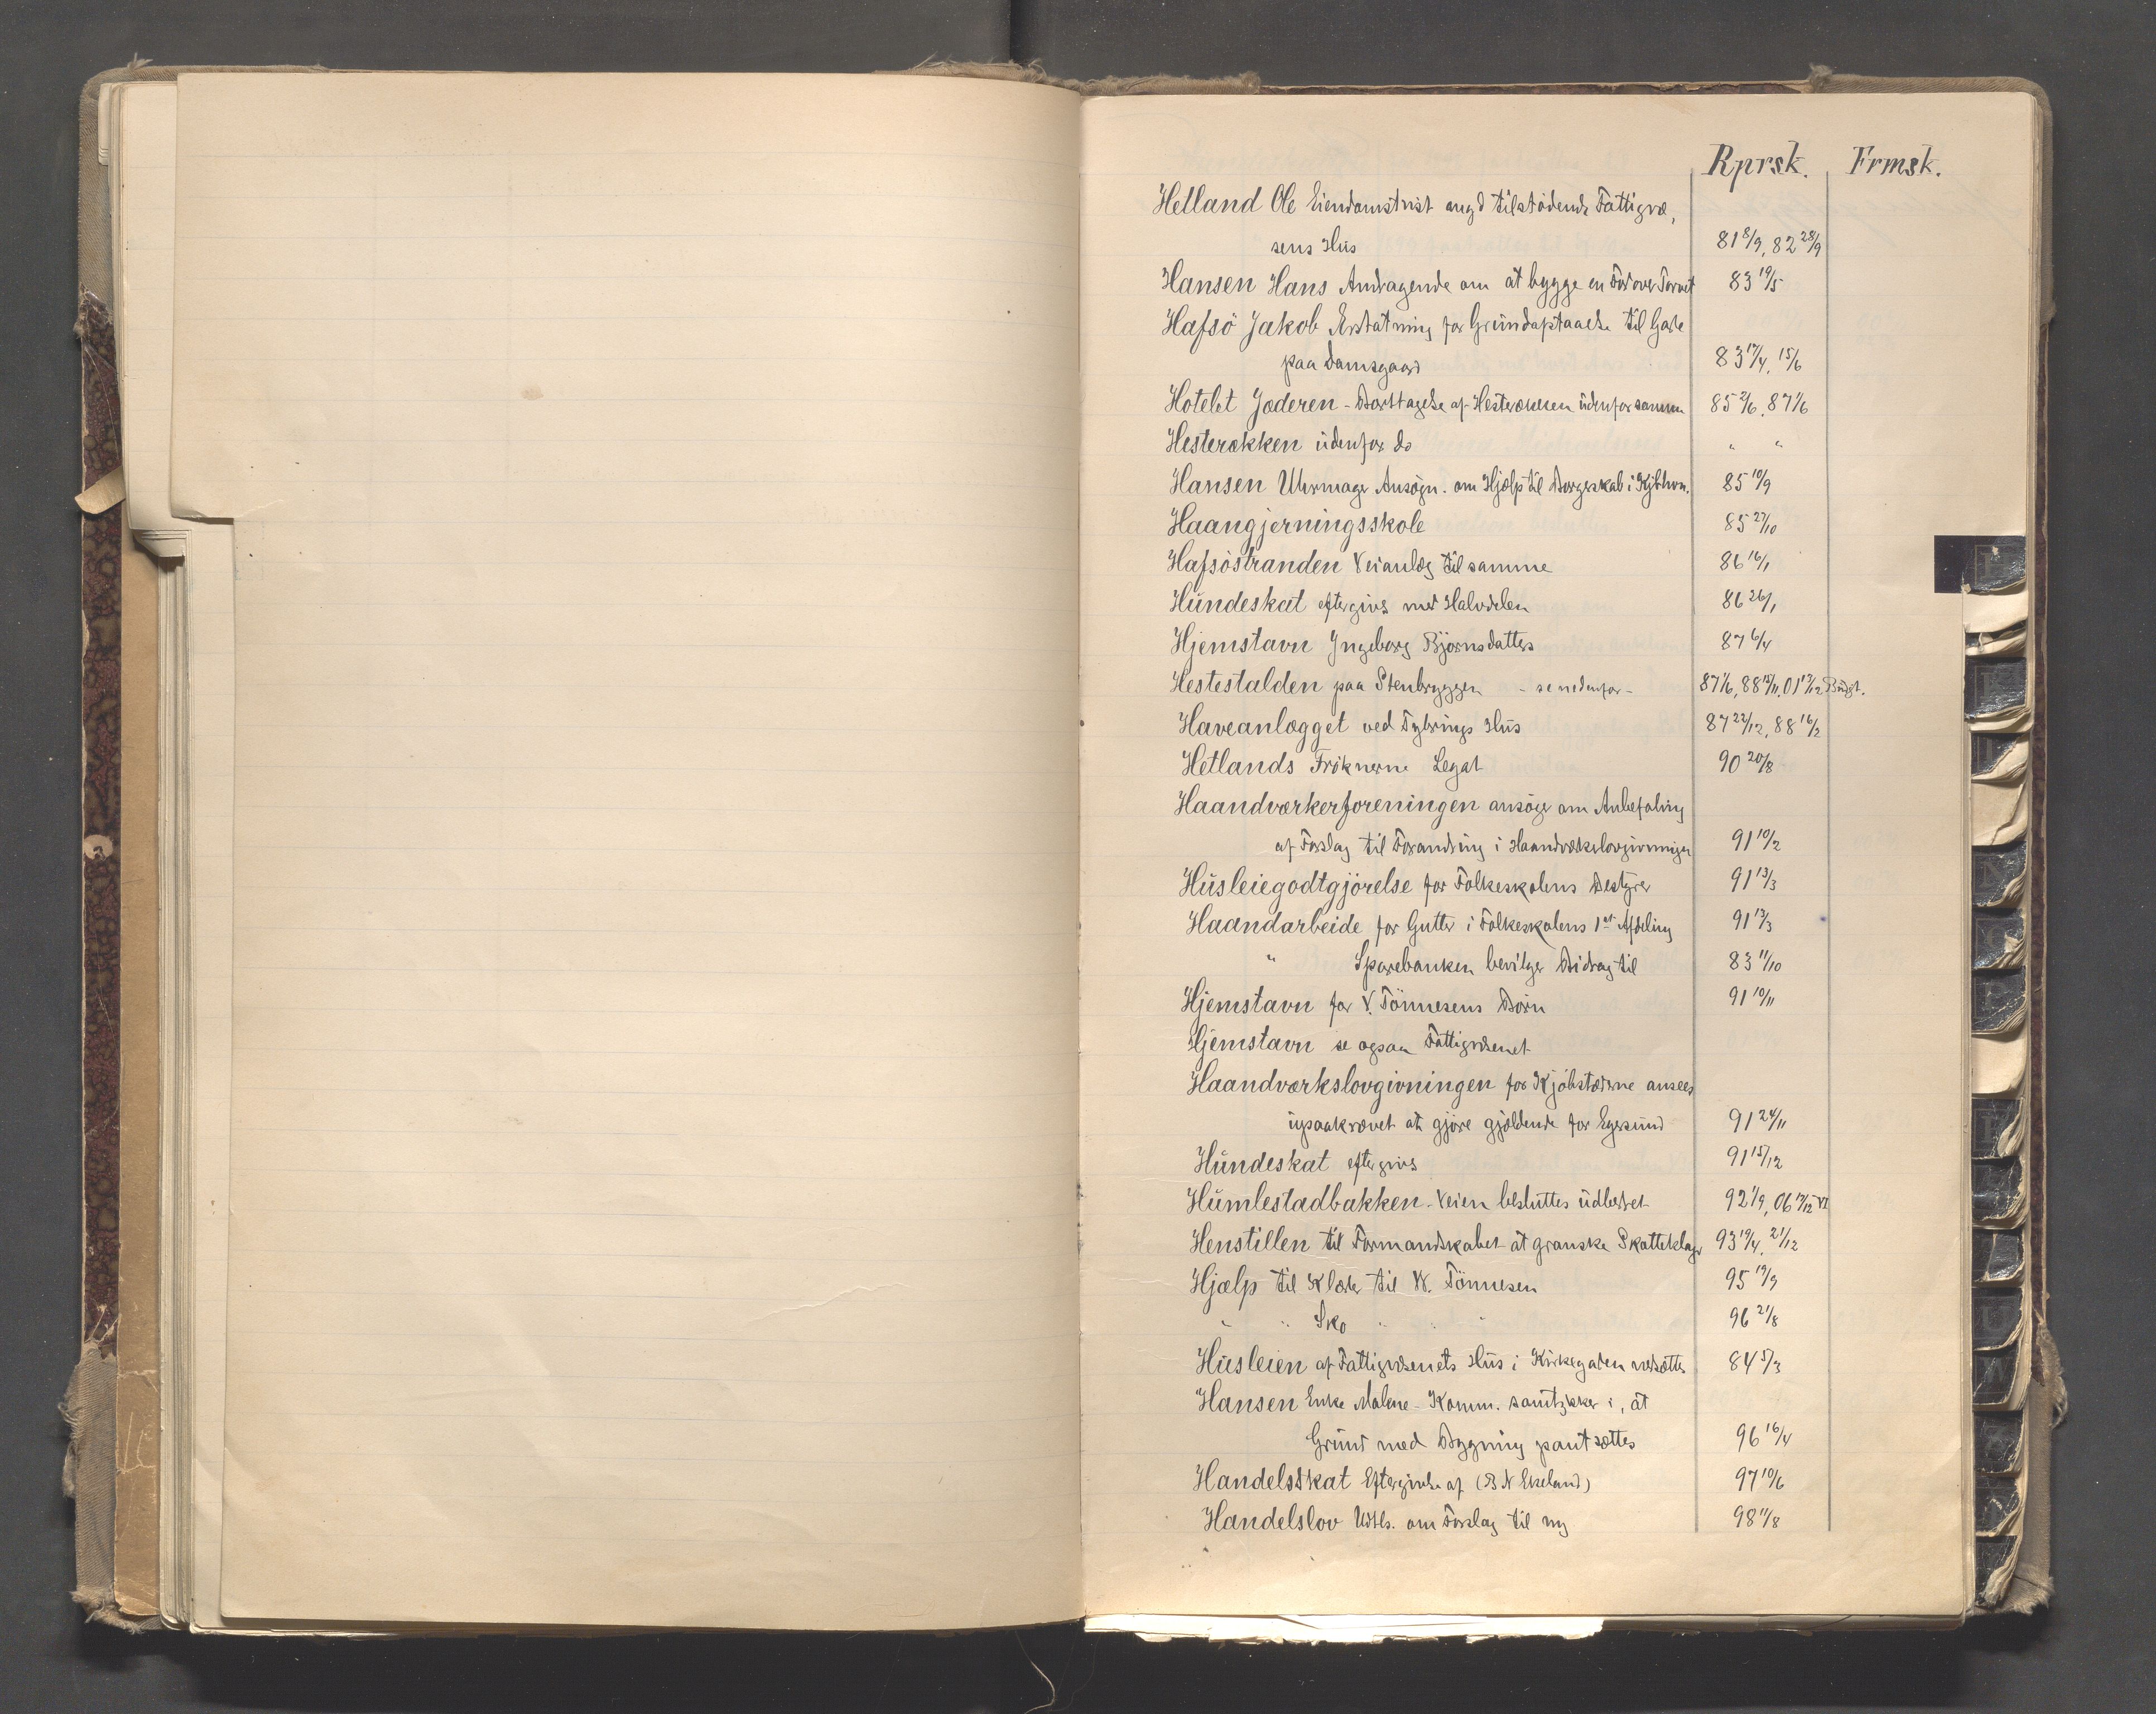 Rprsk. Frmsk.
Helland Ole Eiendomstvist angd tilstødende Fattigvæ,
sens Hus 81 8/9, 82 28/9
Hansen Hans Andragende om at bygge en over Torvet 83 19/5
Hafsö Jakob Erstatning for Grundafstaaelse til Gade
paa Damsgaard 83 17/4, 15/6
Hotelet Jæderen - Borttagelse af Hesterækken udenfor samme 85 2/6, 87 1/6
Hesterækken udenfor do " "
Hansen Uhrmager Ansøgn. om Hjælp til Borgerskab i Kjbhvn. 85 10/9
Haangjerningsskole 85 27/10
Hafsöstranden Veianlæg til samme 86 16/1
Hundeskat eftergives med Halvdelen 86 26/1
Hjemstavn Ingeborg Björnsdatters 87 6/4
Hestestalden paa Stenbryggen - se nedenfor - 87 1/6, 88 12/11, 01 17/12 Budgt.
Haveanlægget ved Dybrings Hus 87 22/12, 88 16/2
Hetlands Fröknerne Legat 90 20/8
Haandværkerforeningen ansöger om Anbefaling
af Forslag til Forandring i Haandværkslovgivningen 91 10/2
Husleiegodtgjörelse for Folkeskolens Bestyrer 91 13/3
Haandarbeide for Gutter i Folkeskolens 1ste Afdeling 91 13/3
" Sparebanken bevilger Bidrag til 83 11/10
Hjemstavn for V. Tönnesens Börn 91 10/11
Hjemstavn se ogsaa Fattigvæsenet
Haandværkslovgivningen for Kjöbstæderne ansees
upaakrævet at gjöre gjældende for Egersund 91 24/11
Hundeskat eftergives 91 15/12
Humlestadbakken - Veien besluttes udbedret 92 1/9, 06 12/12 VI
Henstillen til Formandskabet at granske Skatteklager 93 19/4, 21/12
Hjælp til Klæder til W. Tönnesen 95 17/9
" " Sko " " " 96 21/8
Husleien af Fattigvæsenets Hus i Kirkegaden nedsættes 84 5/3
Hansen Enke Malene - Komm. samtykker i, at
Grund med Bygning pantsættes 96 16/4
Handelsskat Eftergivelse af (B N Ekeland) 97 10/6
Handelslov Udtls. om Forslag til ny 98 11/8